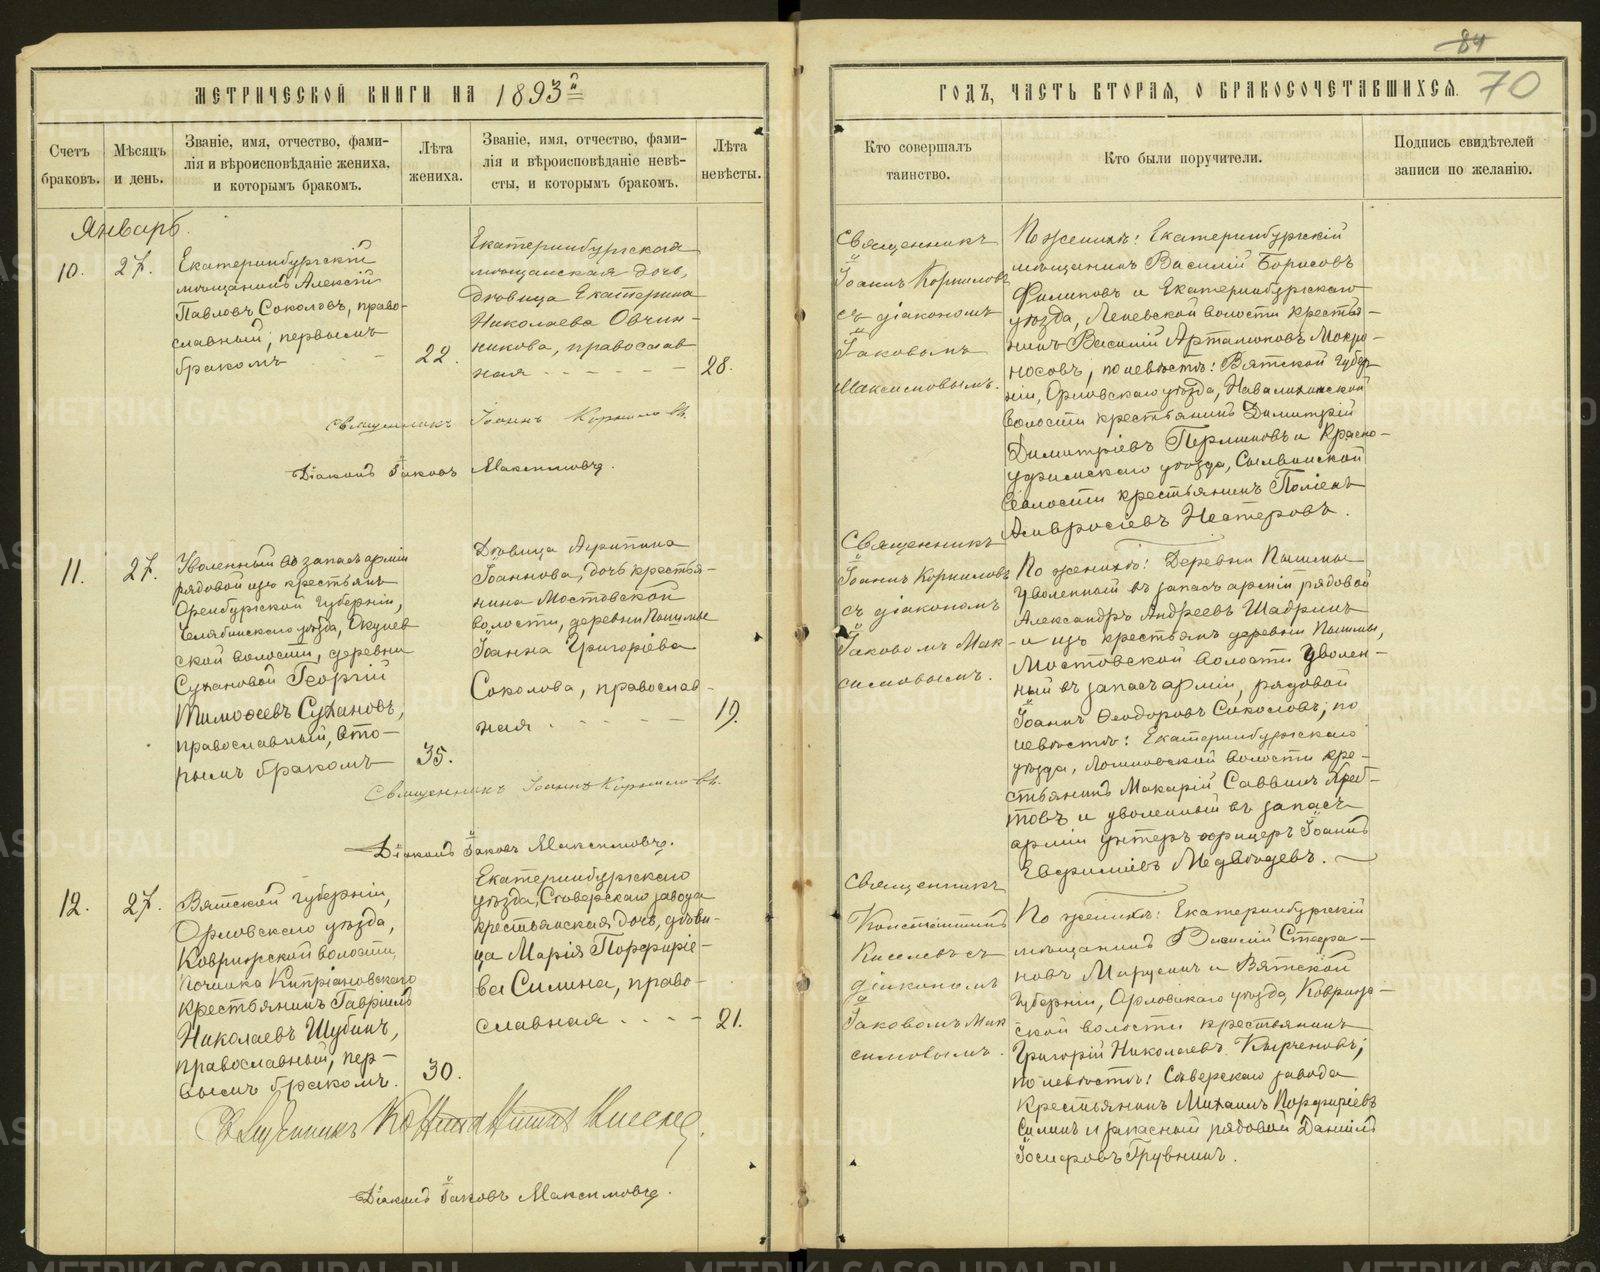 84
70
МЕТРИЧЕСКОЙ КНИГИ НА 1893й
ГОДЪ, ЧАСТЬ ВТОРАЯ, О БРАКОСОЧЕТАВШИХСЯ.
Счетъ браковъ.
Мѣсяцъ и день.
Званіе, имя, отчество, фами-
лія и вѣроисповѣданіе жениха,
и которымъ бракомъ.
Лѣта
жениха.
Званіе, имя, отчество, фами-
лія и вѣроисповѣданіе невѣ-
сты, и которымъ бракомъ.
Лѣта
невѣсты.
Кто совершалъ
таинство.
Кто были поручители.
Подпись свидѣтелей
записи по желанію.
Январь.
10.
27.
Екатеринбургскій
мѣщанинъ Алексій
Павловъ Соколовъ, право-
славный, первымъ
бракомъ
22.
Екатеринбургская
мѣщанская дочь,
дѣвица Екатерина
Николаева Овчин-
никова, православ
ная
28.
Священникъ Іоаннъ Корниловъ.
Діаконъ Іаковъ Максимовъ.
Священникъ
Іоаннъ Корниловъ
съ діакономъ
Іаковомъ
Максимовымъ.
По женихѣ: Екатеринбургскій
мѣщанинъ Василій Борисовъ
Филиповъ и Екатеринбургскаго
уѣзда, волости крестья-
нинъ Василій Артамоновъ Мокро-
носовъ, по невѣстѣ: Вятской губер
ніи, Орловскаго уѣзда,
волости крестьянинъ Димитрій
Димитріевъ и Красно-
уфимскаго уѣзда, Сылвинской
волости крестьянинъ
Амвросіевъ Нестеровъ.
11.
27.
Уволенный въ запасъ арміи
рядовой изъ крестьянъ
Оренбургской губерніи,
Челябинскаго уѣзда, Окунев
ской волости, деревни
Сухановой Георгій
Тимофеевъ Сухановъ,
православный, вто-
рымъ бракомъ
35.
Дѣвица Агрипина
Іоаннова, дочь крестья-
нина Мостовской
волости, деревни Пышмы
Іоанна Григоріева
Соколова, православ-
ная
19.
Священникъ Іоаннъ Корниловъ.
Діаконъ Іаковъ Максимовъ.
Священникъ
Іоаннъ Корниловъ
съ діакономъ
Іаковомъ Мак-
симовымъ.
По женихѣ: Деревни Пышмы
уволенный въ запасъ арміи рядовой
Александръ Андреевъ Шадринъ
и изъ крестьянъ деревни Пышмы,
Мостовской волости уволен-
ный въ запасъ арміи, рядовой
Іоаннъ Ѳеодоровъ Соколовъ; по
невѣстѣ: Екатеринбургскаго
уѣзда, волости кре-
стьянинъ Макарій Саввинъ
и уволенный въ запасъ
арміи унтеръ офицеръ Іоаннъ
Евфиміевъ Медвѣдевъ.
12.
27.
Вятской губерніи,
Орловскаго уѣзда,
Ковригской волости,
починка Кипріановскаго
крестьянинъ Гавріилъ
Николаевъ Шубинъ,
православный, пер-
вымъ бракомъ.
30.
Екатеринбургскаго
уѣзда, Сѣверскаго завода
крестьянская дочь, дѣви-
ца Марія Порфиріе-
ва Силина, право-
славная
21.
Священникъ Константинъ Киселевъ.
Діаконъ Іаковъ Максимовъ.
Священникъ
Константинъ
Киселевъ съ
діакономъ
Іаковомъ Мак
симовымъ.
По женихѣ: Екатеринбургскій
мѣщанинъ Василій Стефа-
новъ и Вятской
губерніи, Орловскаго уѣзда,
ской волости крестьянинъ
Григорій Николаевъ
по невѣстѣ: Сѣверскаго завода
крестьянинъ Михаилъ Порфиріевъ
Силинъ и запасный рядовой Даніилъ
Іосифовъ
METRIKI.GASO-URAL.RU